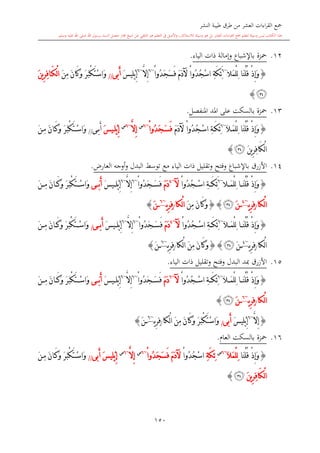 جمع القراءات العشر من طرق طيبة النشر
١٢. حمزة بالإشباع وإمالة ذات الياء.
﴿ وَإِذْ قُلْنَا لِلْمَلَـٰٓئِكَةِ ٱسْجُدُوا۟ لِـَٔادَمَ فَسَجَدُوٓا۟ إِلَّآ إِبْلِيسَ أَبَىٰ وَٱسْتَكْبَرَ وَكَانَ مِنَ ٱلْكَـٰفِرِينَ
﴾
١٣. حمزة بالسكت على المد المنفصل.
﴿ وَإِذْ قُلْنَا لِلْمَلَـٰٓئِكَةِ ٱسْجُدُوا۟ لِـَٔادَمَ فَسَجَدُوٓا۟ إِلَّآ إِبْلِيسَ أَبَىٰ وَٱسْتَكْبَرَ وَكَانَ مِنَ
ٱلْكَـٰفِرِينَ ﴾
١٤. الأزرق بالإشباع وفتح وتقليل ذات الياء مع توسط البدل وأوجه العارض.
﴿ وَإِذْ قُلْنَا لِلْمَلَـٰٓئِكَةِ ٱسْجُدُوا۟ لِـَٔادَمَ فَسَجَدُوٓا۟ إِلَّآ إِبْلِيسَ أَبَىٰ وَٱسْتَكْبَرَ وَكَانَ مِنَ
ٱلْكَـٰفِرِينَ ﴾ ﴿ وَكَانَ مِنَ ٱلْكَـٰفِرِينَ ﴾
﴿ وَإِذْ قُلْنَا لِلْمَلَـٰٓئِكَةِ ٱسْجُدُوا۟ لِـَٔادَمَ فَسَجَدُوٓا۟ إِلَّآ إِبْلِيسَ أَبَىٰ وَٱسْتَكْبَرَ وَكَانَ مِنَ
ٱلْكَـٰفِرِينَ ﴾ ﴿ وَكَانَ مِنَ ٱلْكَـٰفِرِينَ ﴾
١٥. الأزرق بمد البدل وفتح وتقليل ذات الياء.
﴿ وَإِذْ قُلْنَا لِلْمَلَـٰٓئِكَةِ ٱسْجُدُوا۟ لِـَٔادَمَ فَسَجَدُوٓا۟ إِلَّآ إِبْلِيسَ أَبَىٰ وَٱسْتَكْبَرَ وَكَانَ مِنَ
ٱلْكَـٰفِرِينَ ﴾
﴿ إِلَّآ إِبْلِيسَ أَبَىٰ وَٱسْتَكْبَرَ وَكَانَ مِنَ ٱلْكَـٰفِرِينَ ﴾
١٦. حمزة بالسكت العام.
﴿ وَإِذْ قُلْنَا لِلْمَلَـٰٓئِكَةِ ٱسْجُدُوا۟ لِـَٔادَمَ فَسَجَدُوٓا۟ إِلَّآ إِبْلِيسَ أَبَىٰ وَٱسْتَكْبَرَ وَكَانَ مِنَ
ٱلْكَـٰفِرِينَ ﴾
١٥٠